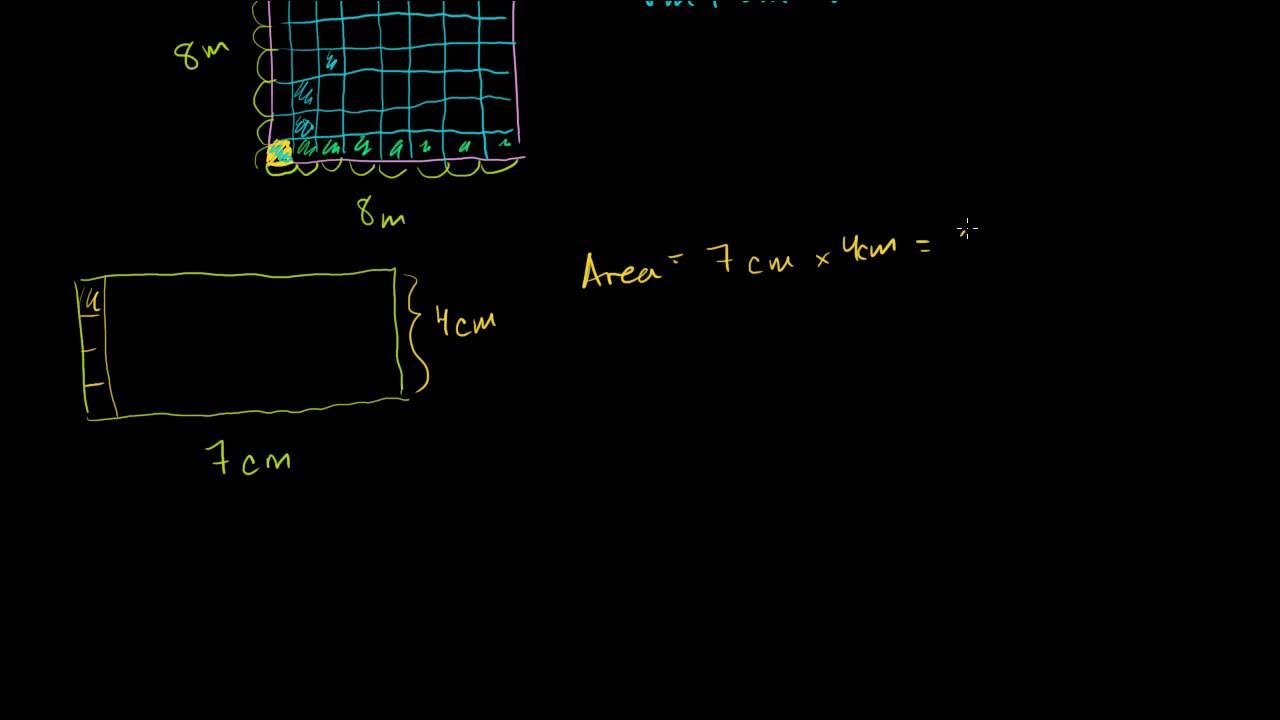 8m
8m
Area = 7 cm x 4cm =
4cm
7 cm